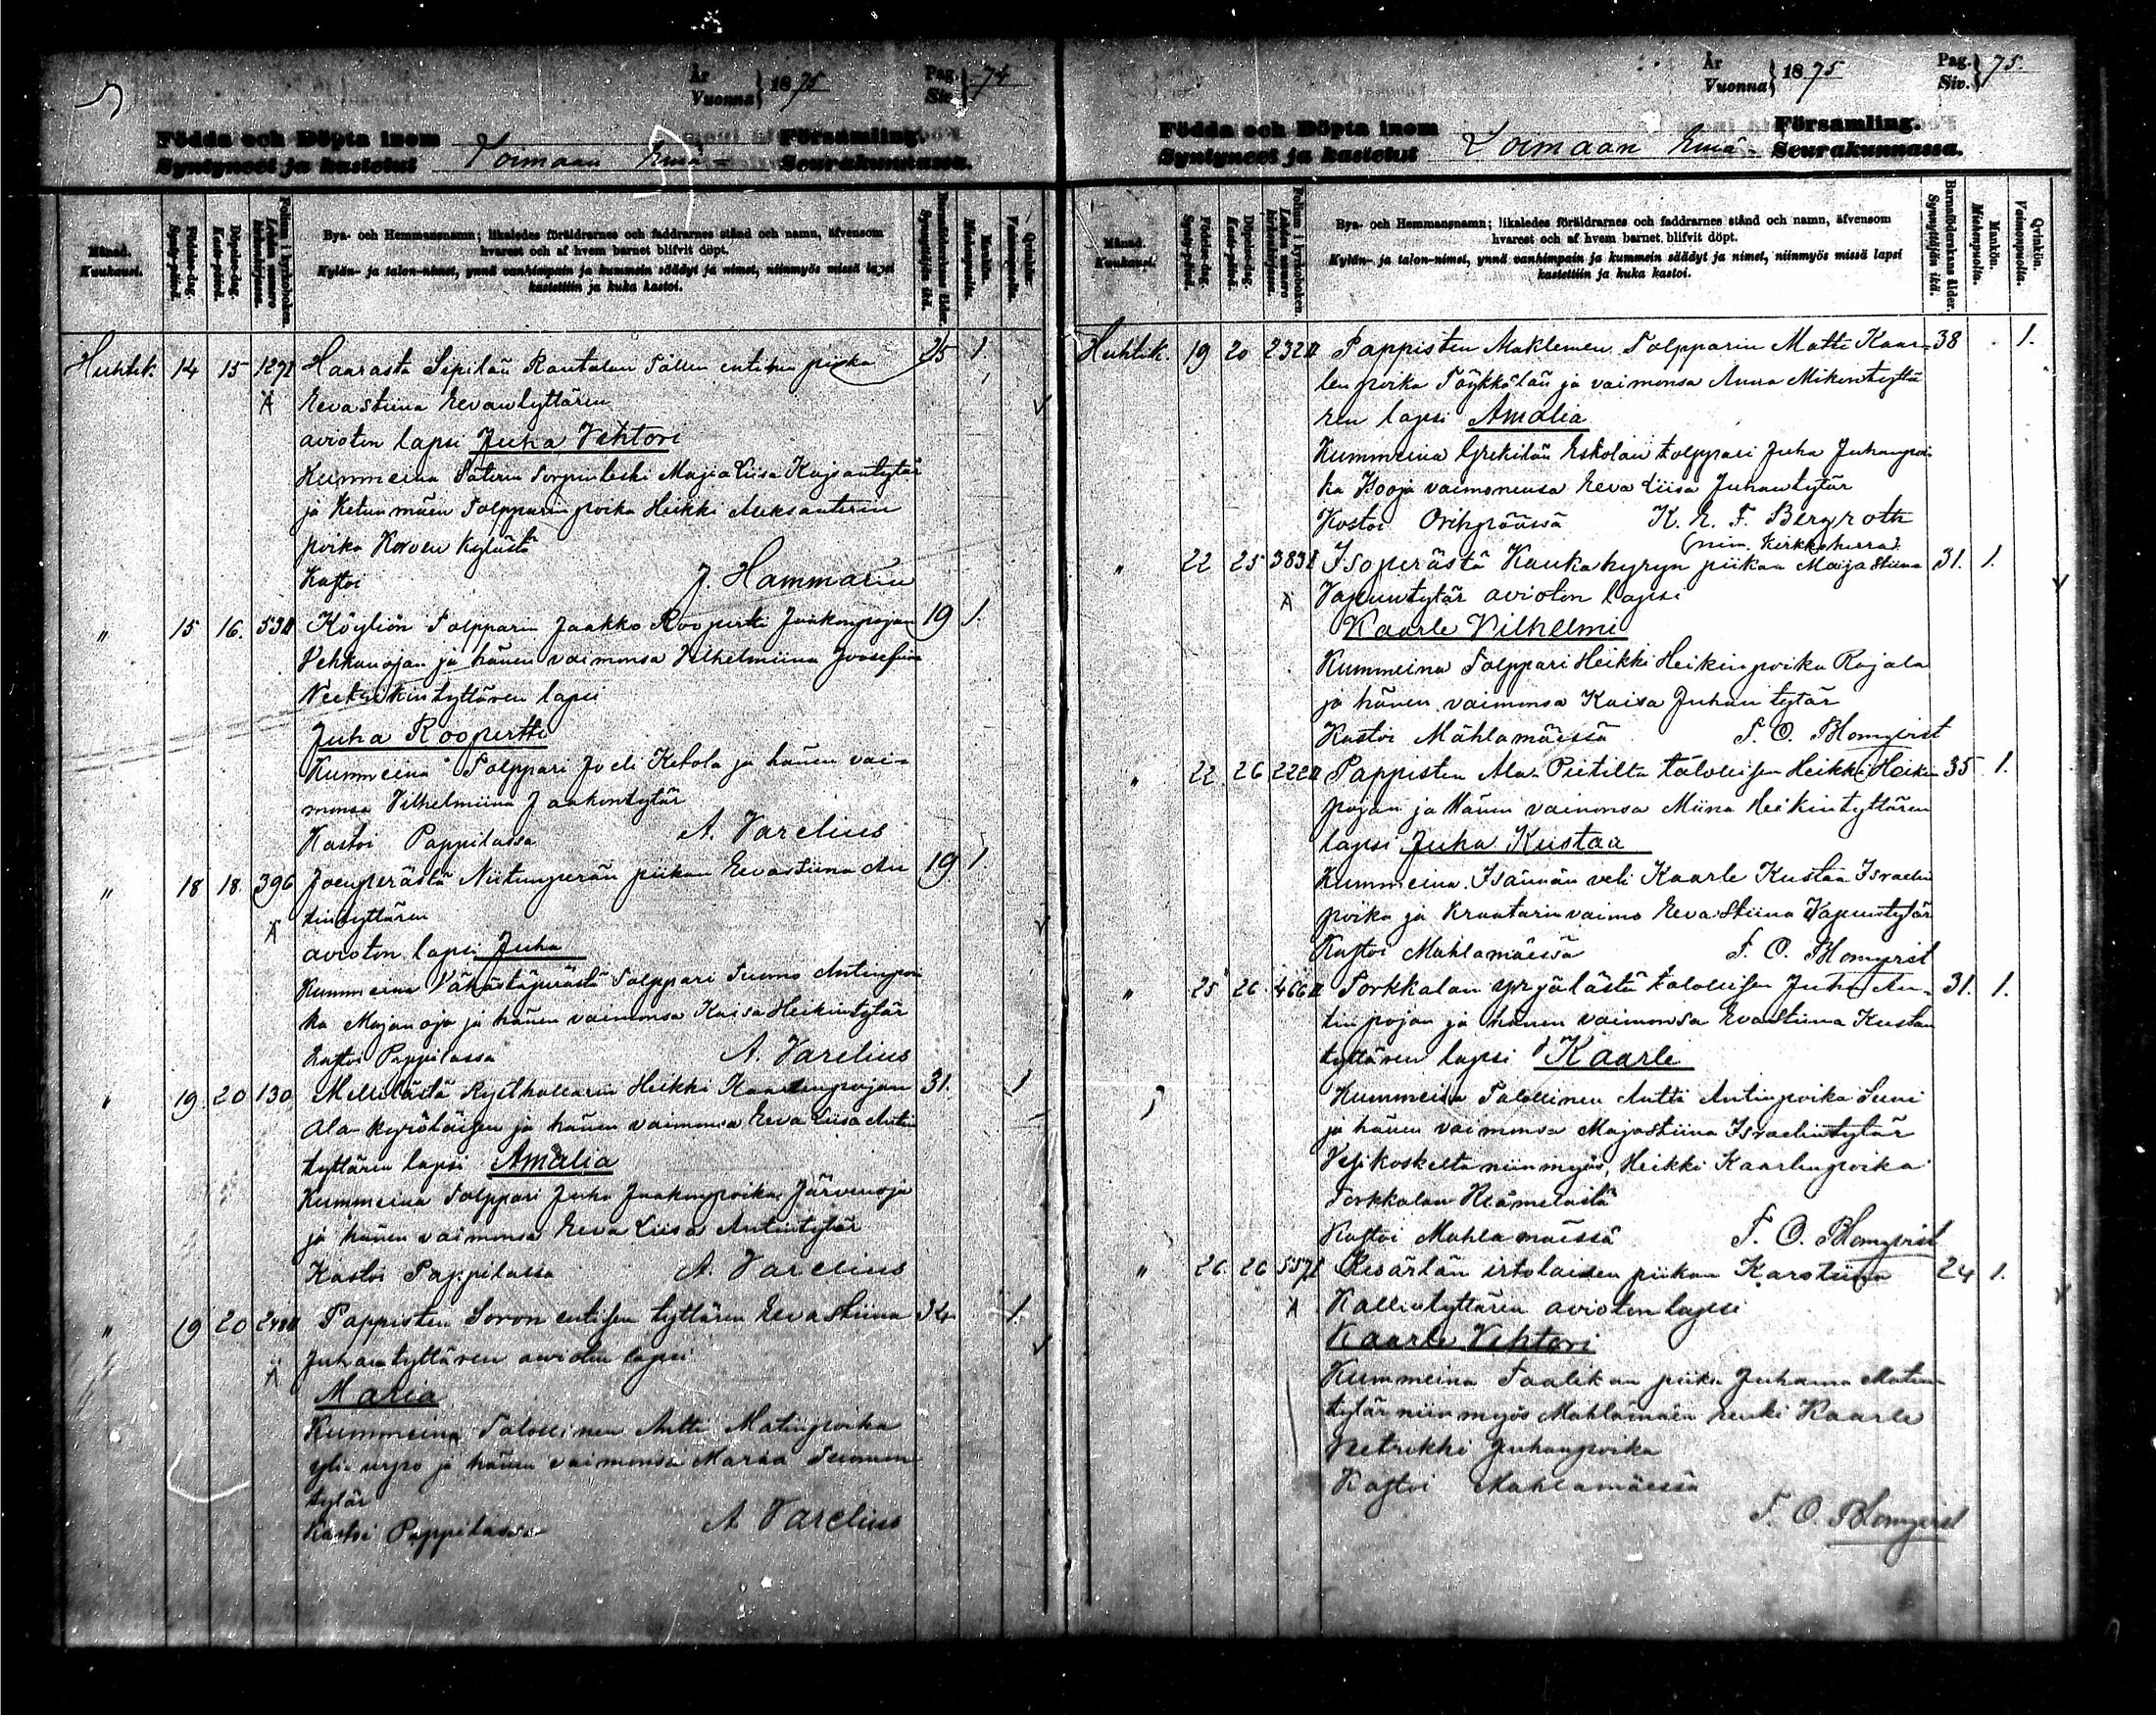 År Vuonna } 1875 Pag. Siv. } 74
Födda och Döpta inom Församling.
Syntyneet ja kastetut Loimaan Emä- Seurakunnassa.
Månad. Kuukausi.
Födelse-dag. Synty-päivä.
Döpelse-dag. Kaste-päivä.
Folium i kyrkoboken. Lehden numero kirkonkirjassa.
Bya- och Hemmansnamn; likaledes föräldrarnes och faddrarnes stånd och namn, äfvensom
hvarest och af hvem barnet blifvit döpt.
Kylän- ja talon-nimet, ynnä vanhimpain ja kummein säädyt ja nimet, niinmyös missä lapsi
kastettiin ja kuka kastoi.
Barnaföderskans ålder. Synnyttäjän ikä.
Mankön. Miehenpuolia.
Qvinkön. Vaimonpuolia.
Huhtik. 14 15 Haarasta Sepilän Rautalan Tällin entisen piika 25 1.
Ä Eevastiina Eevantyttären
avioton lapsi Juha Vihtori
Kummeina Maja Liisa Kajsantytär
ja Ketunmäen Tolpparin poika Heikki Aleksanterin
poika Korven kylästä
Kastoi J. Hammarin
" 15 16. 53 II Köyliön Tolpparin Jaakko Roopertti Jaakonpojan 19 1.
Vehkanojan ja hänen vaimonsa Vilhelmiina Joosefiina
lapsi
Juha Roopertti
Kummeina Tolppari Joeli Ketola ja hänen vai-
monsa Vilhelmiina Jaakontytär
Kastoi Pappilassa A. Varelius
" 18 18. 396 Joenperästä Niitunperän piikan Eevastiina An 19 1
Ä tintyttären
avioton lapsi Juha
Kummeina Vähästäperästä Tolppari Tuomo Antinpoi
ka Mojanoja ja hänen vaimonsa Kaisa Heikintytär
Kastoi Pappilassa A. Varelius
" 19. 20 130 Mellilästä Rysthollarin Heikki Kaarlenpojan 31. 1
Ala-kyröläisen ja hänen vaimonsa Eeva Liisa Antin
tyttären lapsi Amalia
Kummeina Tolppari Juha Jaakonpoika Järvenoja
ja hänen vaimonsa Eeva Liisa Antintytär
Kastoi Pappilassa A. Varelius
" 19 20 Pappisten Soron entisen tyttären Eevastiina 34 1.
Ä Juhantyttären avioton lapsi
Maria
Kummeina Talollinen Antti Matinpoika
ja hänen vaimonsa Maria Tuomon
tytär
Kastoi Pappilassa A Varelius
År Vuonna } 1875 Pag. Siv. } 75.
Födda och Döpta inom Församling.
Syntyneet ja kastetut Loimaan Emä- Seurakunnassa.
Månad. Kuukausi.
Födelse-dag. Synty-päivä.
Döpelse-dag. Kaste-päivä.
Folium i kyrkoboken. Lehden numero kirkonkirjassa.
Bya- och Hemmansnamn; likaledes föräldrarnes och faddrarnes stånd och namn, äfvensom
hvarest och af hvem barnet blifvit döpt.
Kylän- ja talon-nimet, ynnä vanhimpain ja kummein säädyt ja nimet, niinmyös missä lapsi
kastettiin ja kuka kastoi.
Barnaföderskans ålder. Synnyttäjän ikä.
Mankön. Miehenpuolia.
Qvinkön. Vaimonpuolia.
Huhtik. 19 20 232 II Pappisten Maklemen Tolpparin Matti Kaar- 38 1.
len poika Töykkälän ja vaimonsa Anna Mikontyttä
ren lapsi Amalia
Kummeina Eskolan tolppari Juha Juhanpoi
ka Isooja vaimonensa Eeva Liisa Juhantytär
Kastoi Oripäässä K. E. F. Bergroth
(nim. Kirkkoherra)
" 22 25 383 I Isoperästä Kaukahyryn piikan Maijastiina 31. 1.
Ä Vapuntytär avioton lapsi
Kaarle Vilhelmi
Kummeina Tolppari Heikki Heikinpoika Rajala
ja hänen vaimonsa Kaisa Juhan tytär
Kastoi Mahlamäessä F. O. Blomqvist
" 22. 26 222 II Pappisten Ala-Pietilta talollisen Heikki Heikin 35 1.
pojan ja Hänen vaimonsa Miina Heikintyttären
lapsi Juha Kustaa
Kummeina Isännän veli Kaarle Kustaa Israelin
poika ja Kraatarinvaimo Eeva Stiina Vapuntytär
Kastoi Mahlamäessä F. O. Blomqvist
" 25 26 466 II Torkkalan Yrjölästä talollisen Juha An- 31. 1.
tinpojan ja hänen vaimonsa Evastiina Kustan
tyttären lapsi Kaarle
Kummeina Talollinen Antti Antinpoika Suni
ja hänen vaimonsa Majastiina Israelintytär
Vesikoskelta niinmyös, Heikki Kaarlenpoika
Torkkalan
Kastoi Mahlamäessä F. O. Blomqvist
" 26. 26 557 I irtolaisen piikan Karostiina 24 1.
Ä Kallentyttären avioton lapsi
Kaarle Vihtori
Kummeina piika Juhanna Matin
tytär niinmyös Mahlamäen renki Kaarle
Vietrikki Juhanpoika
Kastoi Mahlamäessä
F. O. Blomqvist